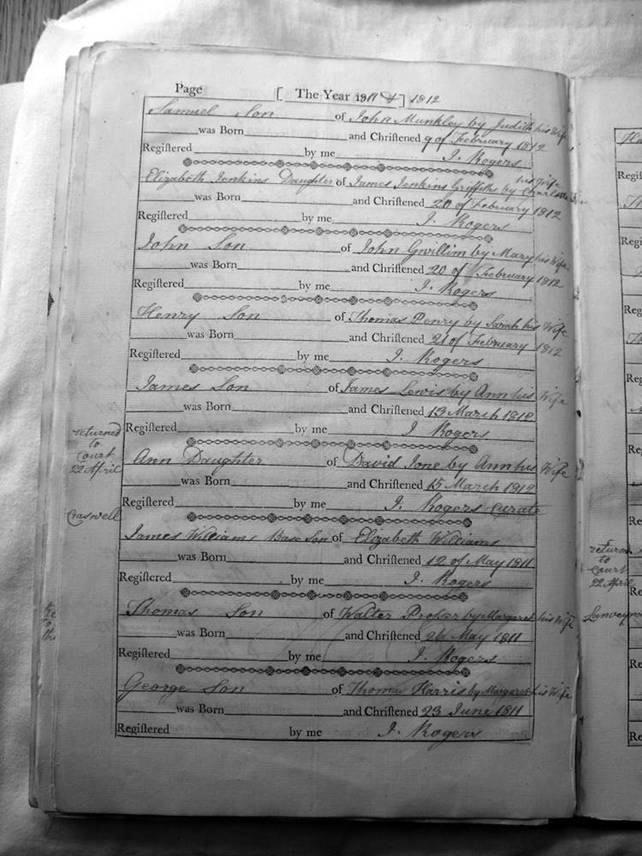 Page [ The Year 1811 & ] 1812
Samuel Son of John Munkley by Judith his Wife
was Born and Chriſtened 9 of February 1812
Regiſtered by me J. Rogers
his Wife
Elizabeth Jenkins Daughter of James Jenkins Griffiths by Charlotte
was Born and Chriſtened 20 of February 1812
Regiſtered by me J. Rogers
John Son of John Gwillim by Mary his Wife
was Born and Chriſtened 20 of February 1812
Regiſtered by me J. Rogers
Henry Son of Thomas Penry by Sarah his Wife
was Born and Chriſtened 21 of February 1812
Regiſtered by me J. Rogers
James Son of James Lewis by Ann his Wife
was Born and Chriſtened 13 March 1812
Regiſtered by me J Rogers
returned
to
Court
22 April
Ann Daughter of David Jone by Ann his Wife
was Born and Chriſtened 15 March 1812
Regiſtered by me J. Rogers curate
Craswell
James Williams Base Son of Elizabeth Williams
was Born and Chriſtened 12 of May 1811
Regiſtered by me J. Rogers
Thomas Son of Walter Proser by Margaret his Wife
was Born and Chriſtened 24 May 1811
Regiſtered by me J. Rogers
George Son of Thomas Harris by Margaret his Wife
was Born and Chriſtened 23 June 1811
Regiſtered by me J. Rogers
return
to
Court
22 April